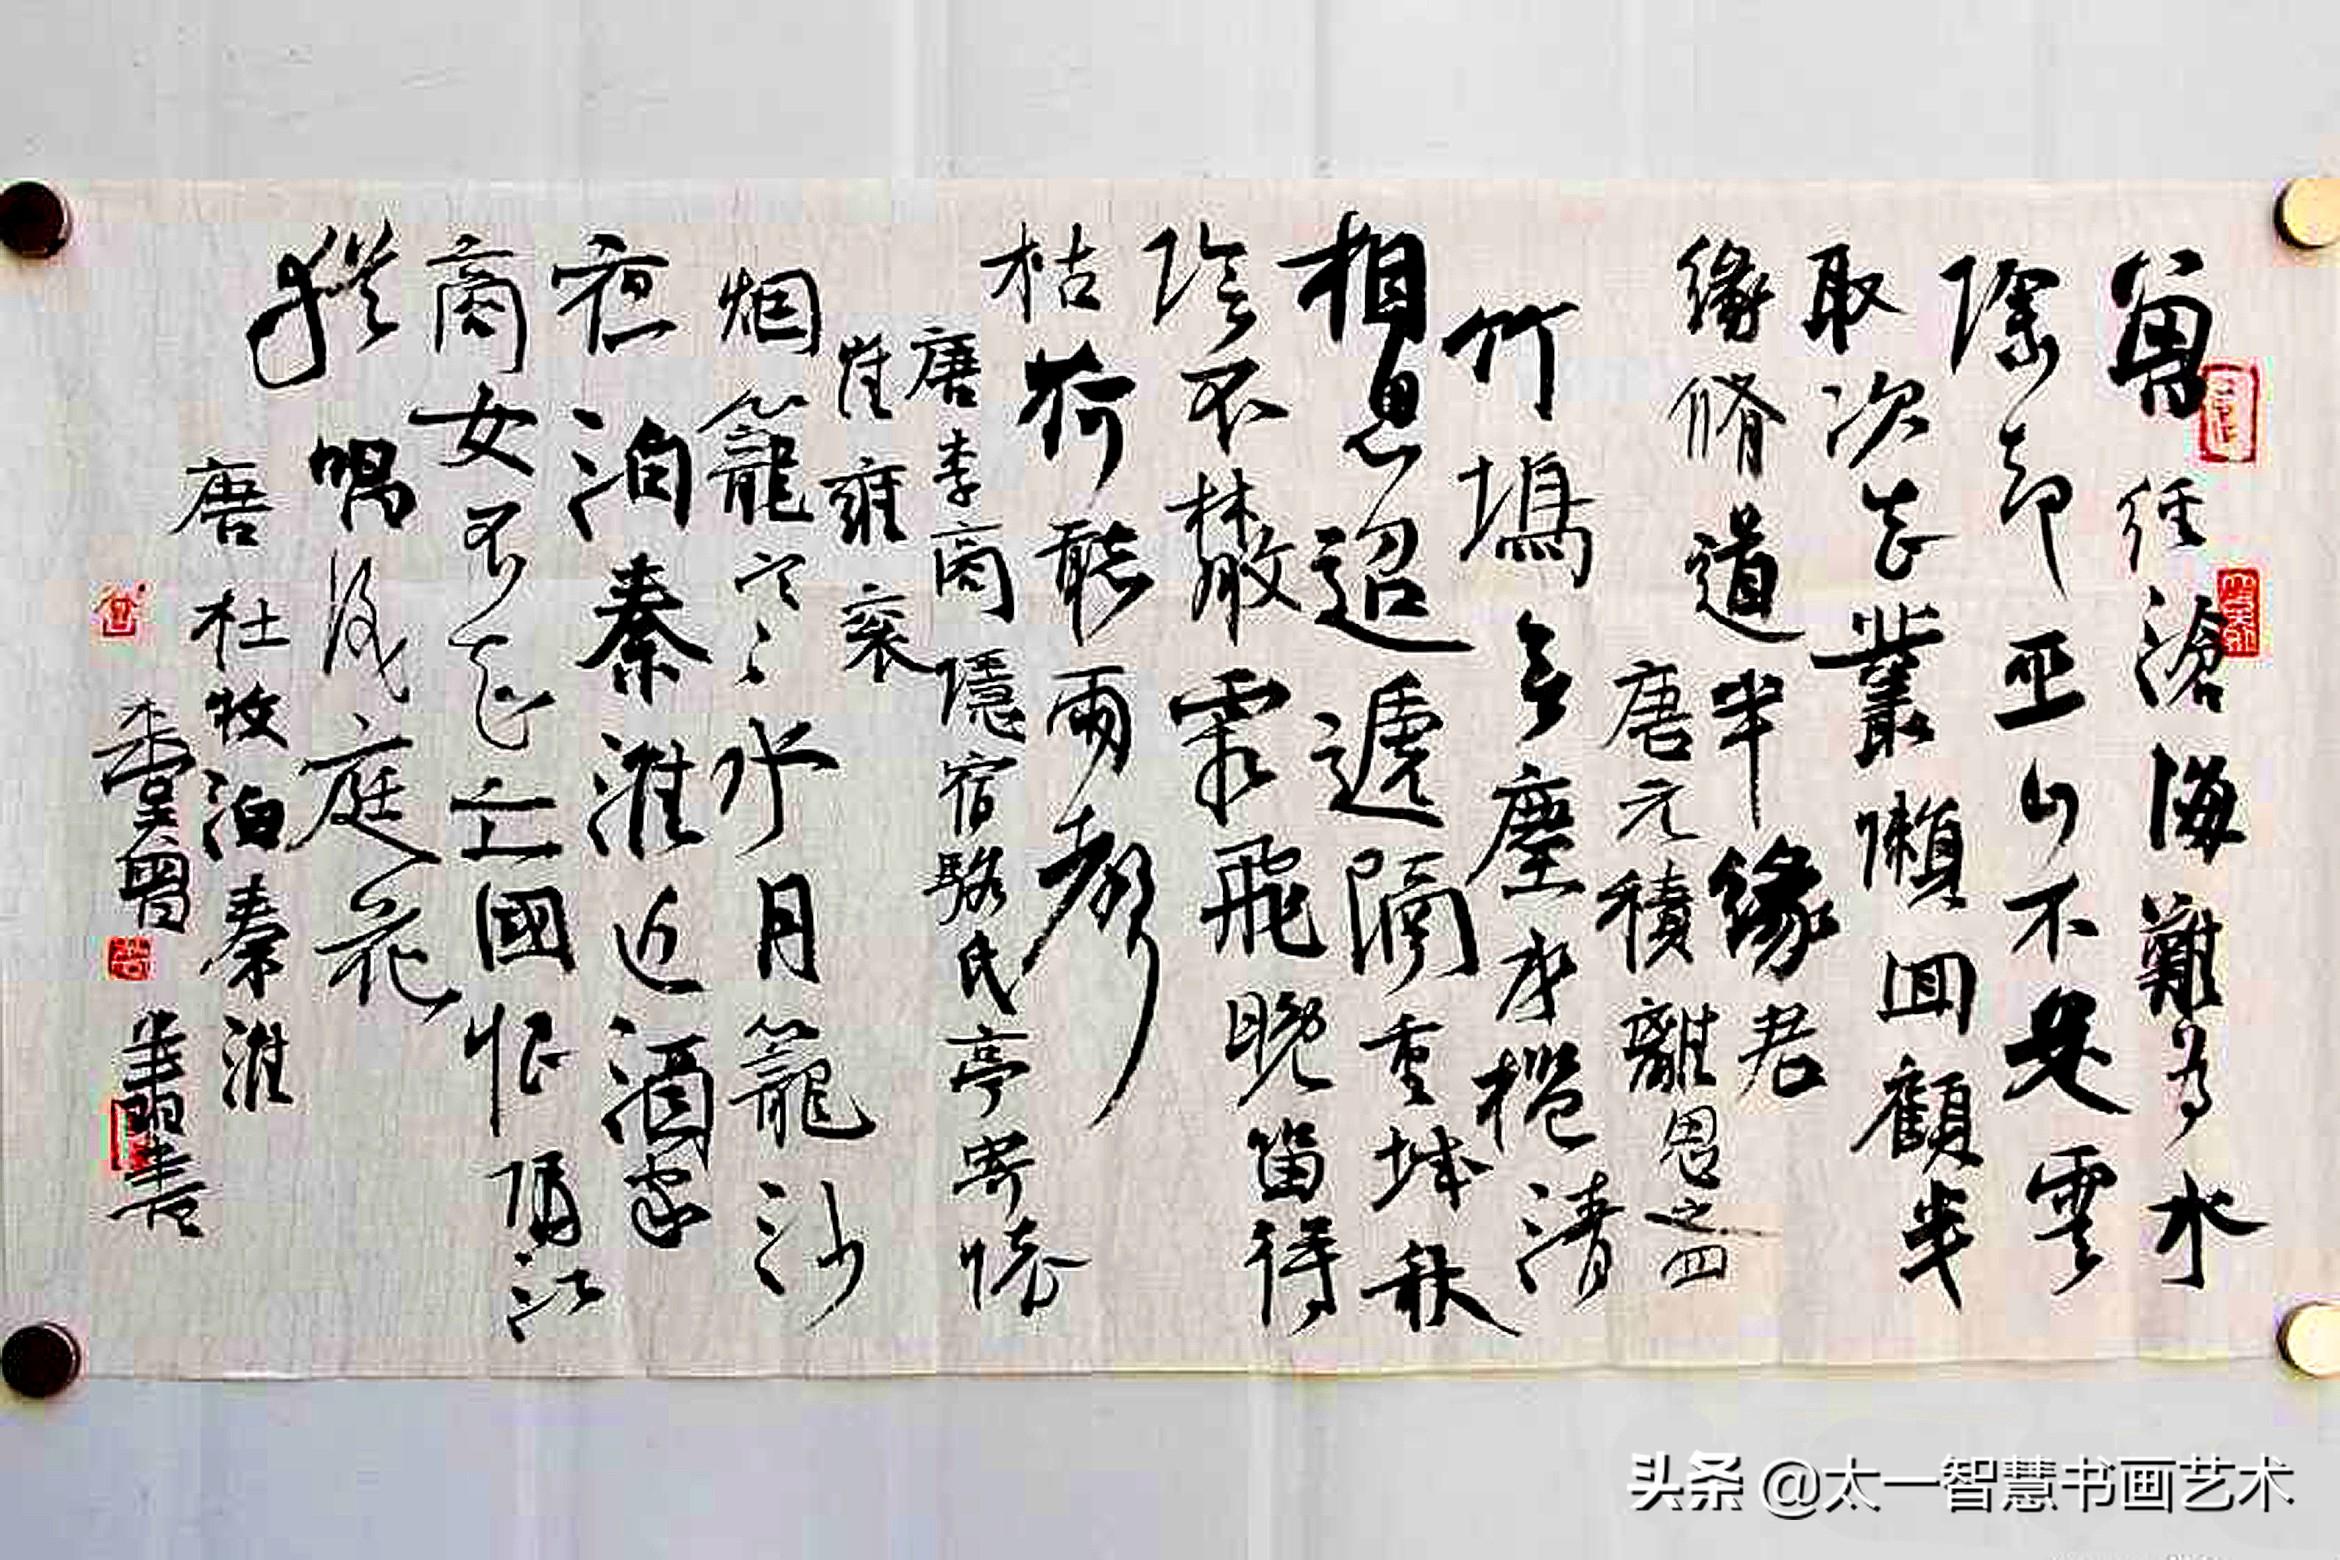 曾经滄海難为水
除却巫山不是雲
取次花叢懒回顧半
緣脩道半緣君
唐元稹離思之四
竹塢无塵水檻清
相思迢遞隔重城秋
陰不散霜飛晚留得
枯荷聽雨聲
唐李商隱宿駱氏亭寄懷
崔雍衮
烟籠寒水月籠沙
夜泊秦淮近酒家
商女不知亡國恨隔江
猶唱後庭花
唐杜牧泊秦淮
書
头条 @太一智慧书画艺术